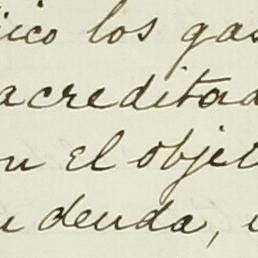 ico los gas
acredita
n el obje
deuda,